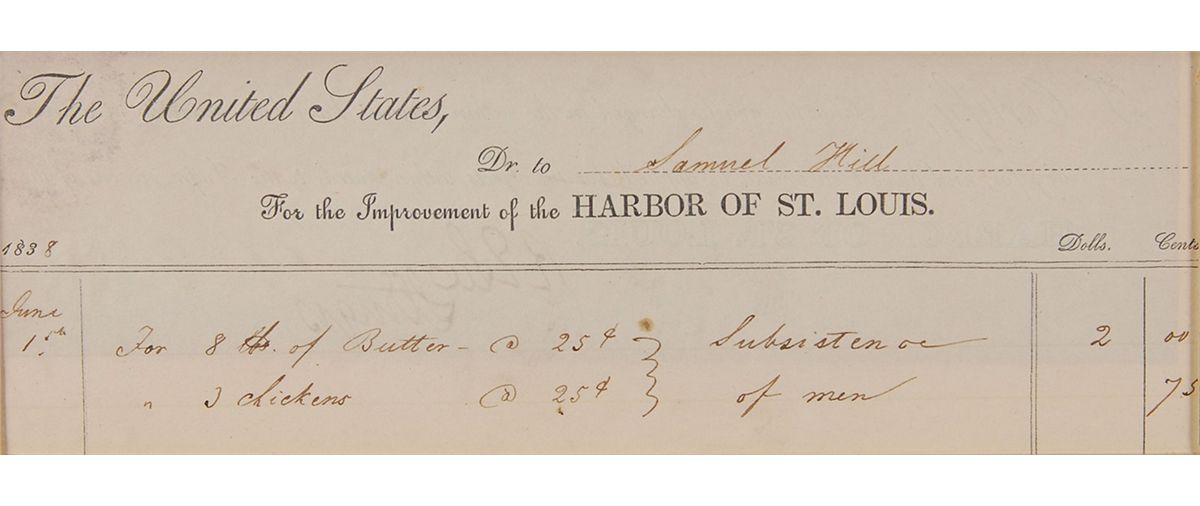 The United States,
Dr. to Samuel Hill
For the Improvement of the HARBOR OF ST. LOUIS.
1838 Dolls. Cents
June
1st. For 8 lbs. of Butter - @ 25¢ } Subsistence 2 00
" 3 chickens @ 25¢ } of men 75